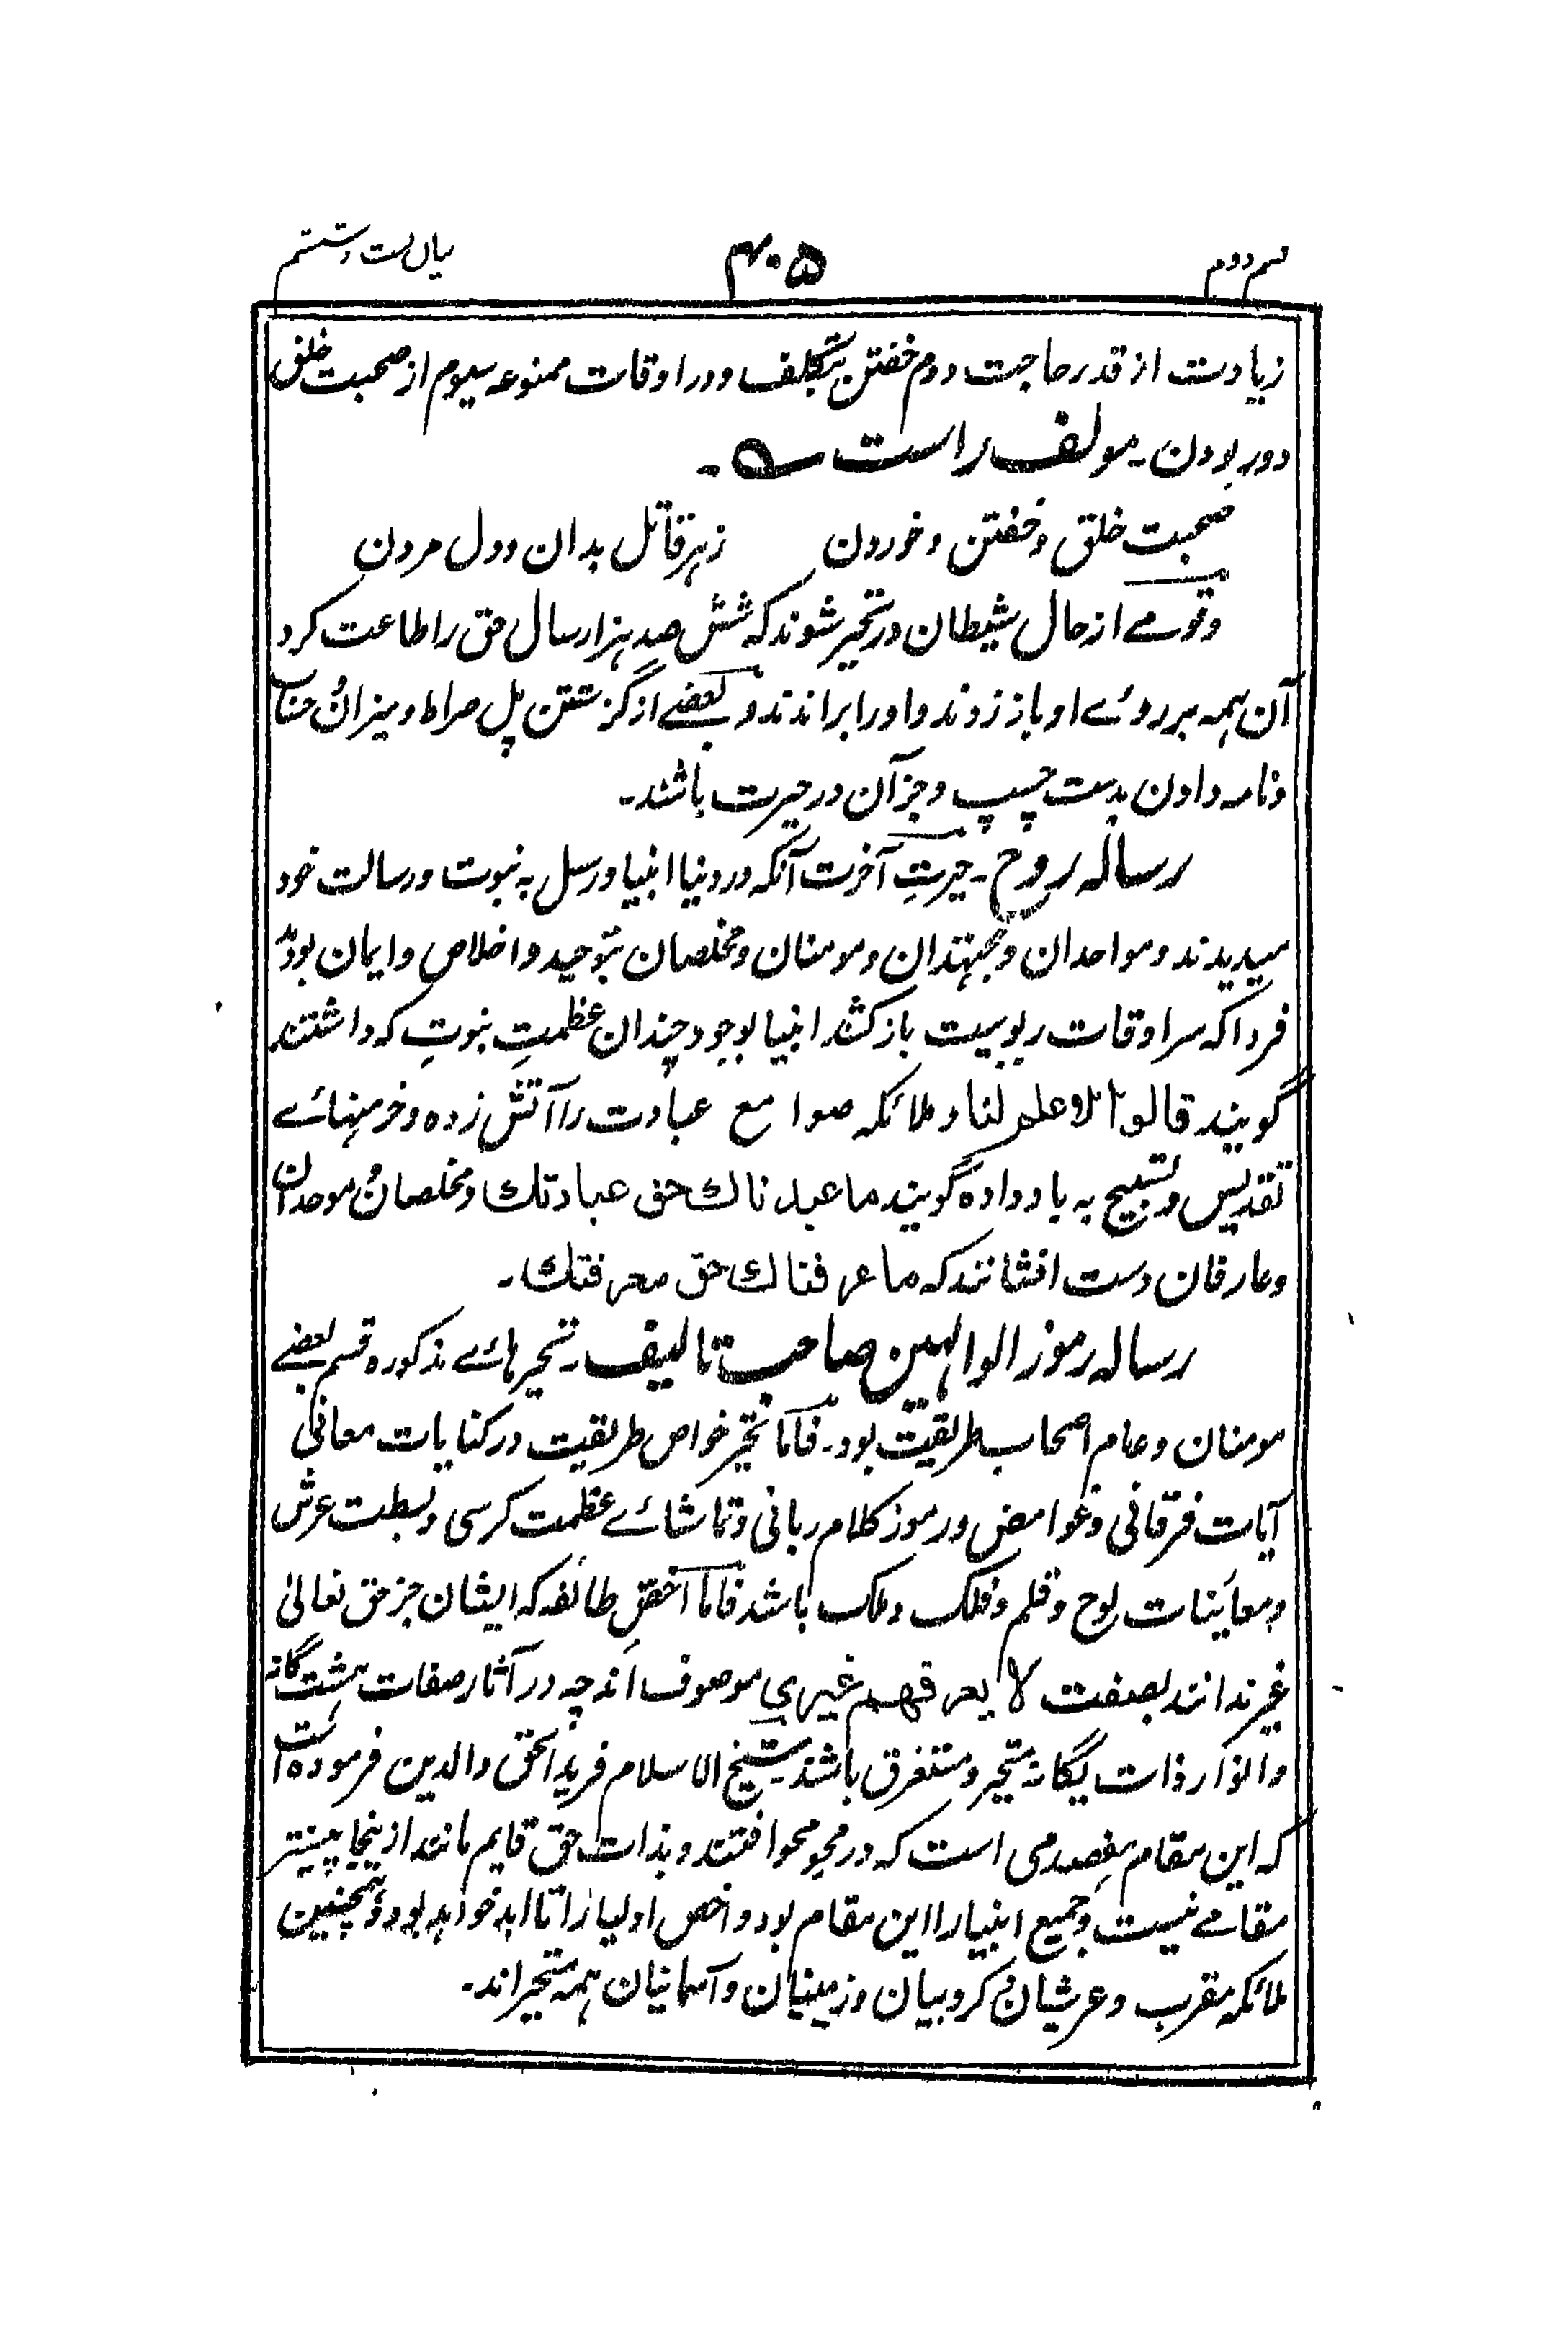 قسم دوم ۴۰۵ بیان بست و ششم
زیادت از قدر حاجت دوم خفتن بتکلف و در اوقات ممنوعہ سیوم از صحبت خلق
دور بودن۔ مولف راست ؎
صحبت خلق و خفتن و خوردن زہر قاتل بدان و دل مردن
وقومے از حال شیطان در تحیر شوند کہ شش صد ہزار سال حق را طاعت کرد
آن ہمہ بر روئے او باز زدند و او را براندند و بعضے از گزشتن پل صراط و میزان حساب
ونامہ دادن بدست چپ و جز آن در حیرت باشند۔
رسالہ روح۔ حیرتِ آخرت آنکہ در دنیا انبیا و رسل بہ نبوت و رسالت خود
میدیدند و مواحدان و مجتہدان و مومنان و مخلصان بتوحید و اخلاص و ایمان بودند
فردا کہ سراوقات ربوبیت باز کشند انبیا بوجود چندان عظمتِ نبوتِ کہ داشتند
گویند قالوا لا علم لنا و ملائکہ صوامع عبادت را آتش زدہ و خرمنہائے
تقدیس و تسبیح بہ باد دادہ گویند ما عبدناك حق عبادتك و مخلصان و موحدان
وعارفان دست افشانند کہ ما عرفناك حق معرفتك۔
رسالہ رموز الوالہین صاحب تالیف۔ تحیر ہائے مذکورہ قسم بعضے
مومنان و عام اصحاب طریقت بود۔ فاما تحیر خواص طریقت در کنایات معانی
آیات فرقانی و غوامض و رموز کلام ربانی و تماشائے عظمت کرسی و بسطت عرش
ومعاینات لوح و قلم و فلک و ملک باشد فاما اخصِّ طائفہ کہ ایشان جز حق تعالیٰ
غیر ندانند بصفت لا یعرفهم غیری موصوف اند چہ در آثار صفات ہشت گانہ
و انوار ذات یگانہ متحیر و مستغرق باشند۔ شیخ الاسلام فرید الحق والدین فرمودہ است
کہ این مقام مقصدمی است کہ در محو محو افتند و بذات حق قایم مانند از ینجا پیشتر
مقامے نیست و جمیع انبیا را این مقام بود و اخص اولیا را تا ابد خواہد بود و ہمچنین
ملائکہ مقرب و عرشیان و کروبیان و زمینیان و آسمانیان ہمہ متحیر اند۔